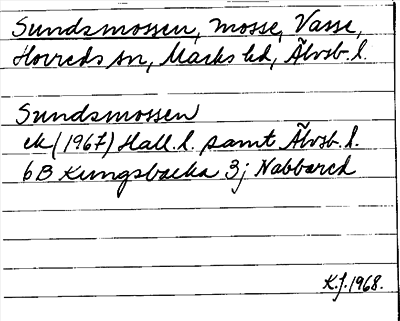 Sundsmossen, mosse, Vasse,
Horreds sn, Marks hd, Älvsb. l.
Sundsmossen
ek (1967) Hall. l. samt Älvsb. l.
6B Kungsbacka 3j Nabbared
K.J. 1968.